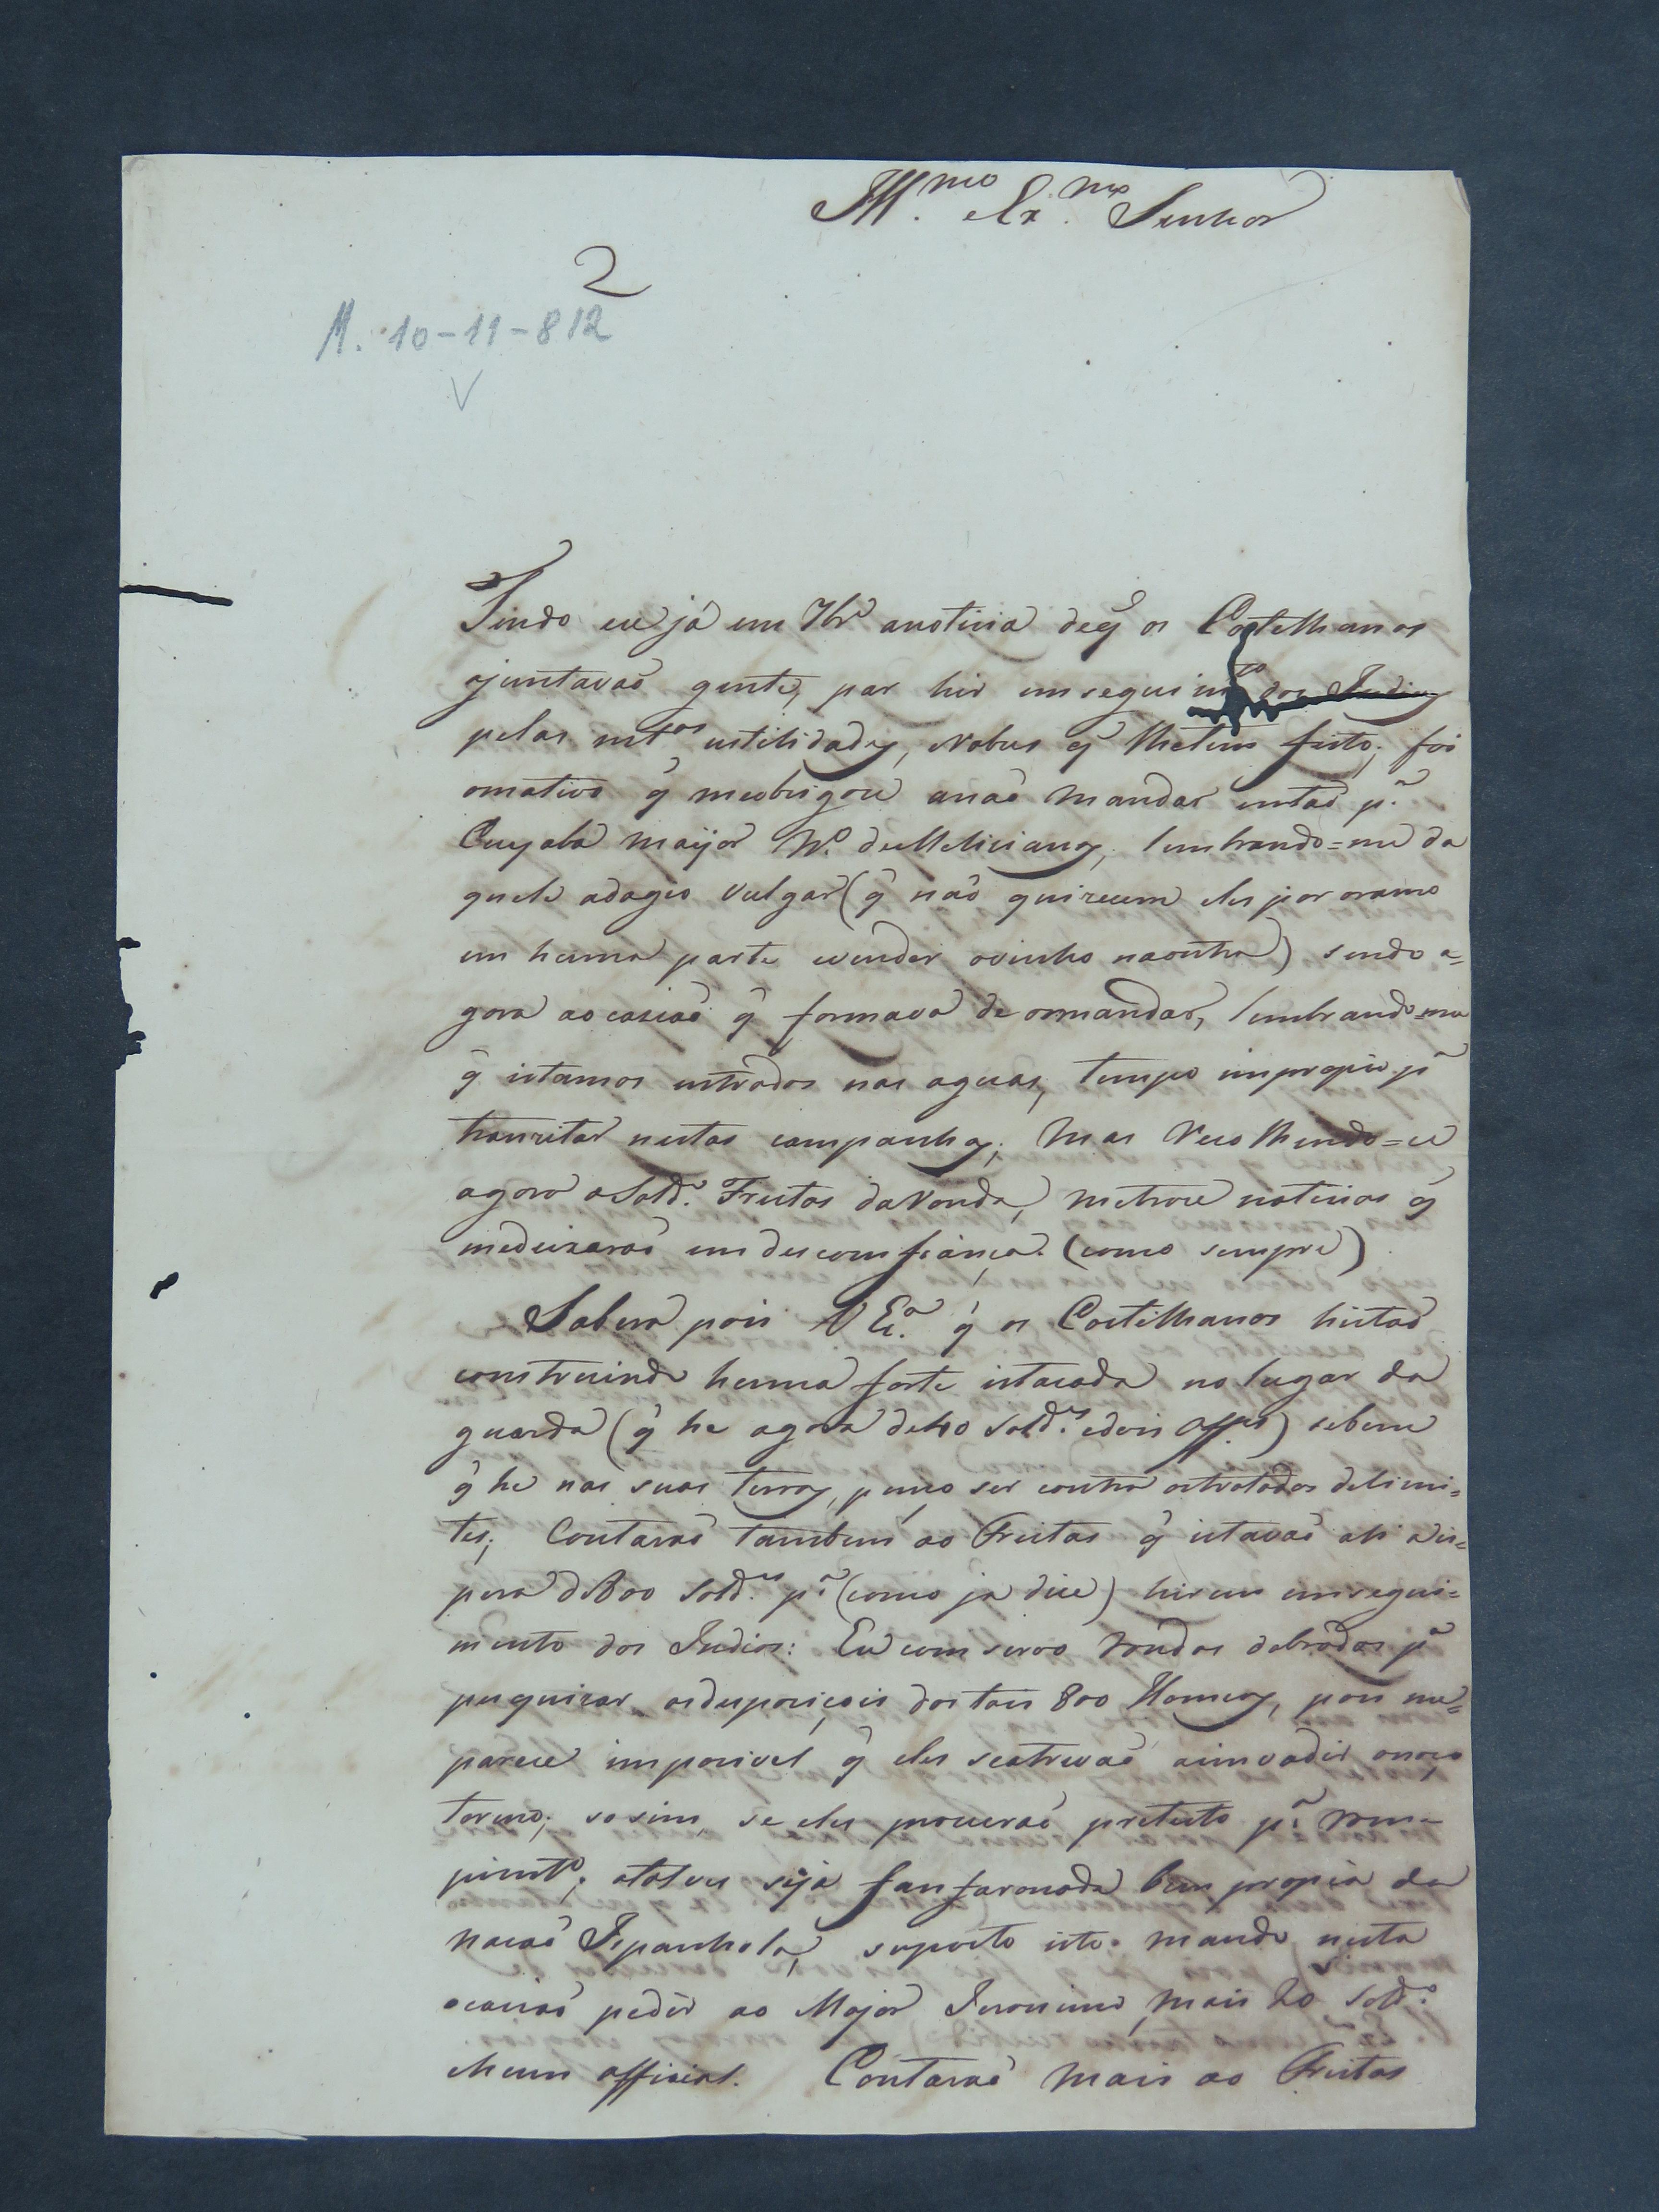 Ill.mo e Ex.mo Senhor
2
A. 10-11-812
Tendo eu já em 7br.o anoticia deq̃ os Castelhanos
ajuntavaõ gente, par hir emseguim.to dos Indios
pelas mt.as ostilidades, eRobus q̃ lhetem feito; foi
omotivo q̃ meobrigou anaõ mandar entaõ p.a
Cuyabá maýor N.o deMeliciano, lembrando=me da
quele adagio vulgar (q̃ naõ quizecem eles por oramo
em huma parte evender ovinho naoutra) sendo a=
gora aocasiaõ q̃ formava de osmandar, lembrando=me
q̃ estamos entrados nas aguas, tempo improprio p.a
tranzitar nestas campanhas; mas Recolhendo=ce
agora oSold.o Freitas daRonda, metroce noticias q̃
medeixaraõ em desconfiança. (como sempre)
Saberá pois V Ex.a q̃ os Castilhanos hestaõ
construindo huma forte estacada no lugar da
guarda (q̃ he agora de40 Sold.os edois Off.es) sebem
q̃ he nas suas terras, penço ser contra ostratados delimi=
tes; Contaraõ tambem ao Freitas q̃ estavaõ ali aes=
pera d800 Sold.os p.a (como ja dice) hirem emsegui=
mento dos Indios: Eu comservo Rondas dobradas p.a
pesquizar asdespoziçois dostais 800 Homens, pois me=
parece imposivel q̃ eles seatrevaõ ainvadir onoço
tereno; so sim, se eles procuraõ pretesto p.a Rom=
pimt.o; etalves seja fanfaronada bem propria da
naçaõ Espanhola, suposto isto. mando nesta
ocasiaõ pedir ao Major Jeronimo, mais 20 Sold.os
ehum official. Contaraõ mais ao Freitas